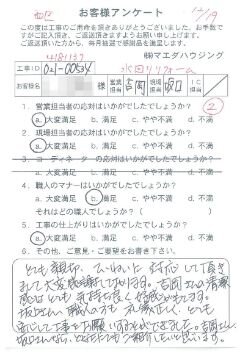 お客様アンケート
12/19
この度は工事のご用命を頂きありがとうございました。お手数で
すがご記入頂き、ご返送頂きますようお願い申し上げます。
ご返送頂いた方から、毎月抽選で感謝品を満呈します。
㈱マエダハウジング
工事ID 021-00534
水回りリフォーム
お客様名 様 営業担当 吉岡 現場担当 坂口 IC担当
1. 営業担当者の応対はいかがでしたでしょうか? ②
a.大変満足 b.満足 c.やや不満 d.不満
2. 現場担当者の応対はいかがでしたでしょうか?
a.大変満足 b.満足 c.やや不満 d.不満
3. コーディネーターの応対はいかがでしたでしょうか?
a.大変満足 b.満足 c.やや不満 d.不満
4. 職人のマナーはいかがでしたでしょうか?
a.大変満足 b.満足 c.やや不満 d.不満
それはどの職人でしょうか?( )
5. 工事の仕上がりはいかがでしたでしょうか?
a.大変満足 b.満足 c.やや不満 d.不満
6. その他、ご意見・ご要望をお書き下さい
とても親切、ていねいに対応して頂き
まして大変感謝しております。吉岡さんの清潔
感はとても気持ち良く好感がもてます。
坂口さん、職人の方も礼儀正しく、とても
安心して工事をお願いすることができました。吉岡さん、